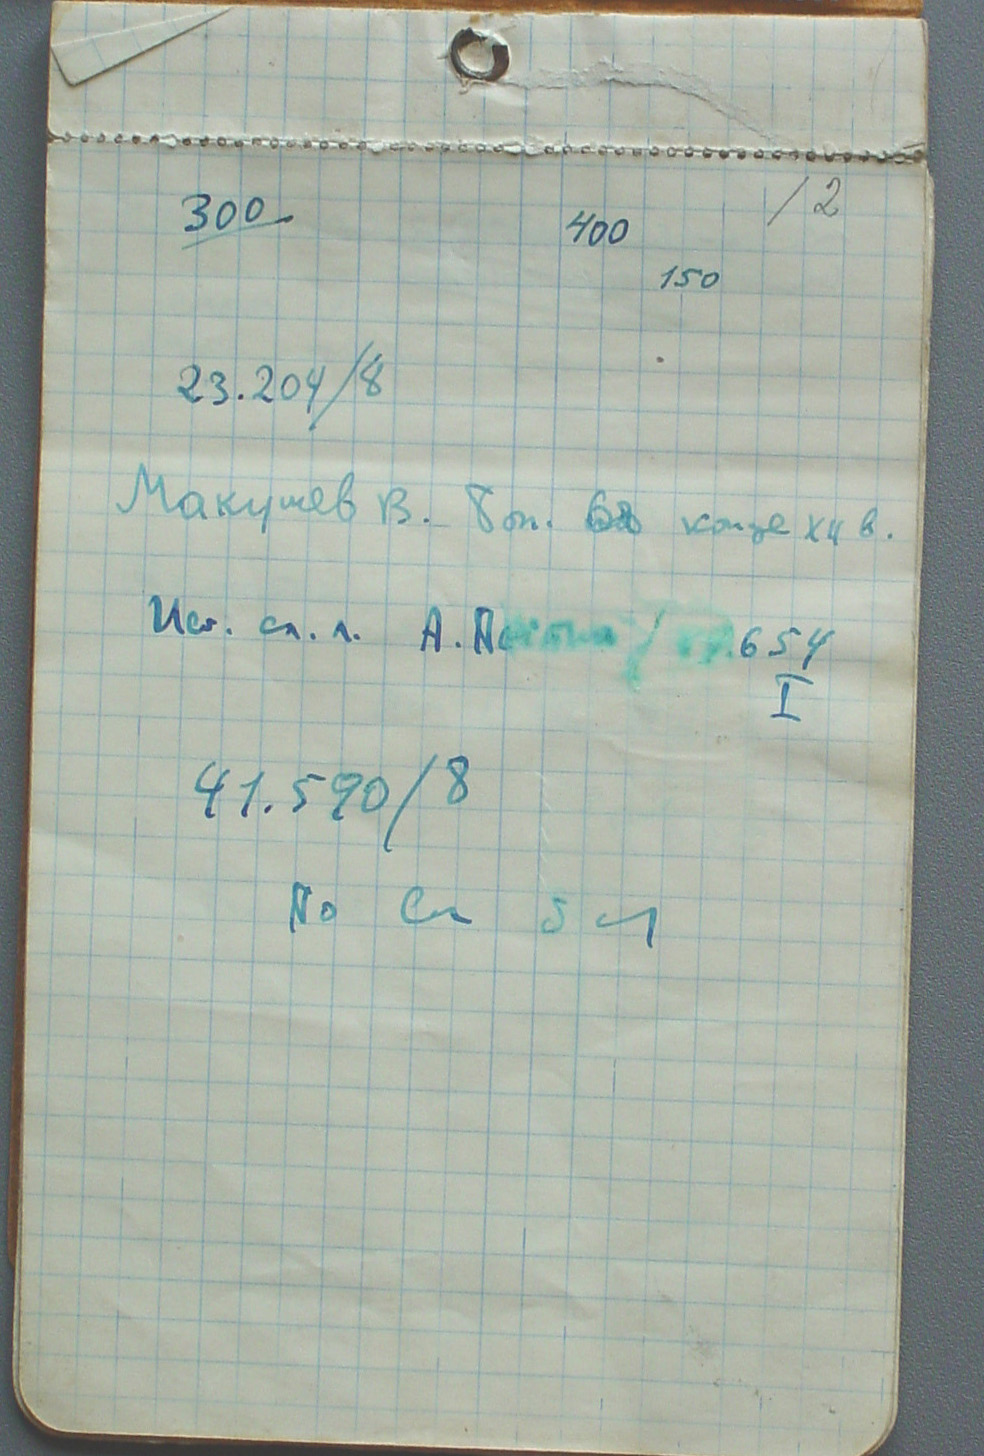 /2
300 400
150
23.204/8
Макушев В. Бол. в конце XII в.
Ист. сл. л. А. 654
I
41.590/8
По Сл 5